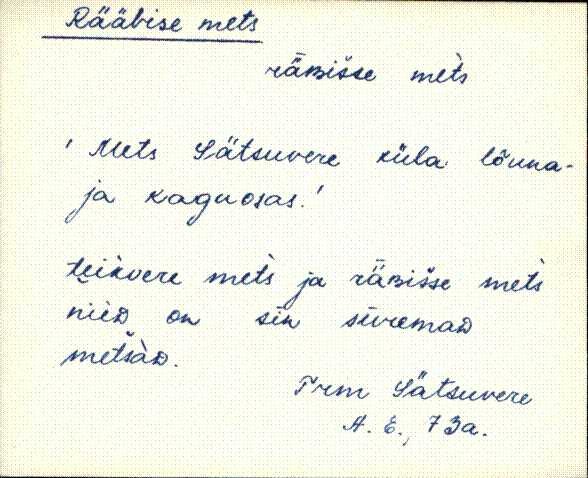 Rääbise mets
rǟʙišše mèts
' Mets Sätsuvere küla lõuna-
ja kaguosas.'
teikvere mets ja rǟʙišše mets
nieᴅ on sin sūremaᴅ
metšàᴅ.
Trm Sätsuvere
A. E., 73a.